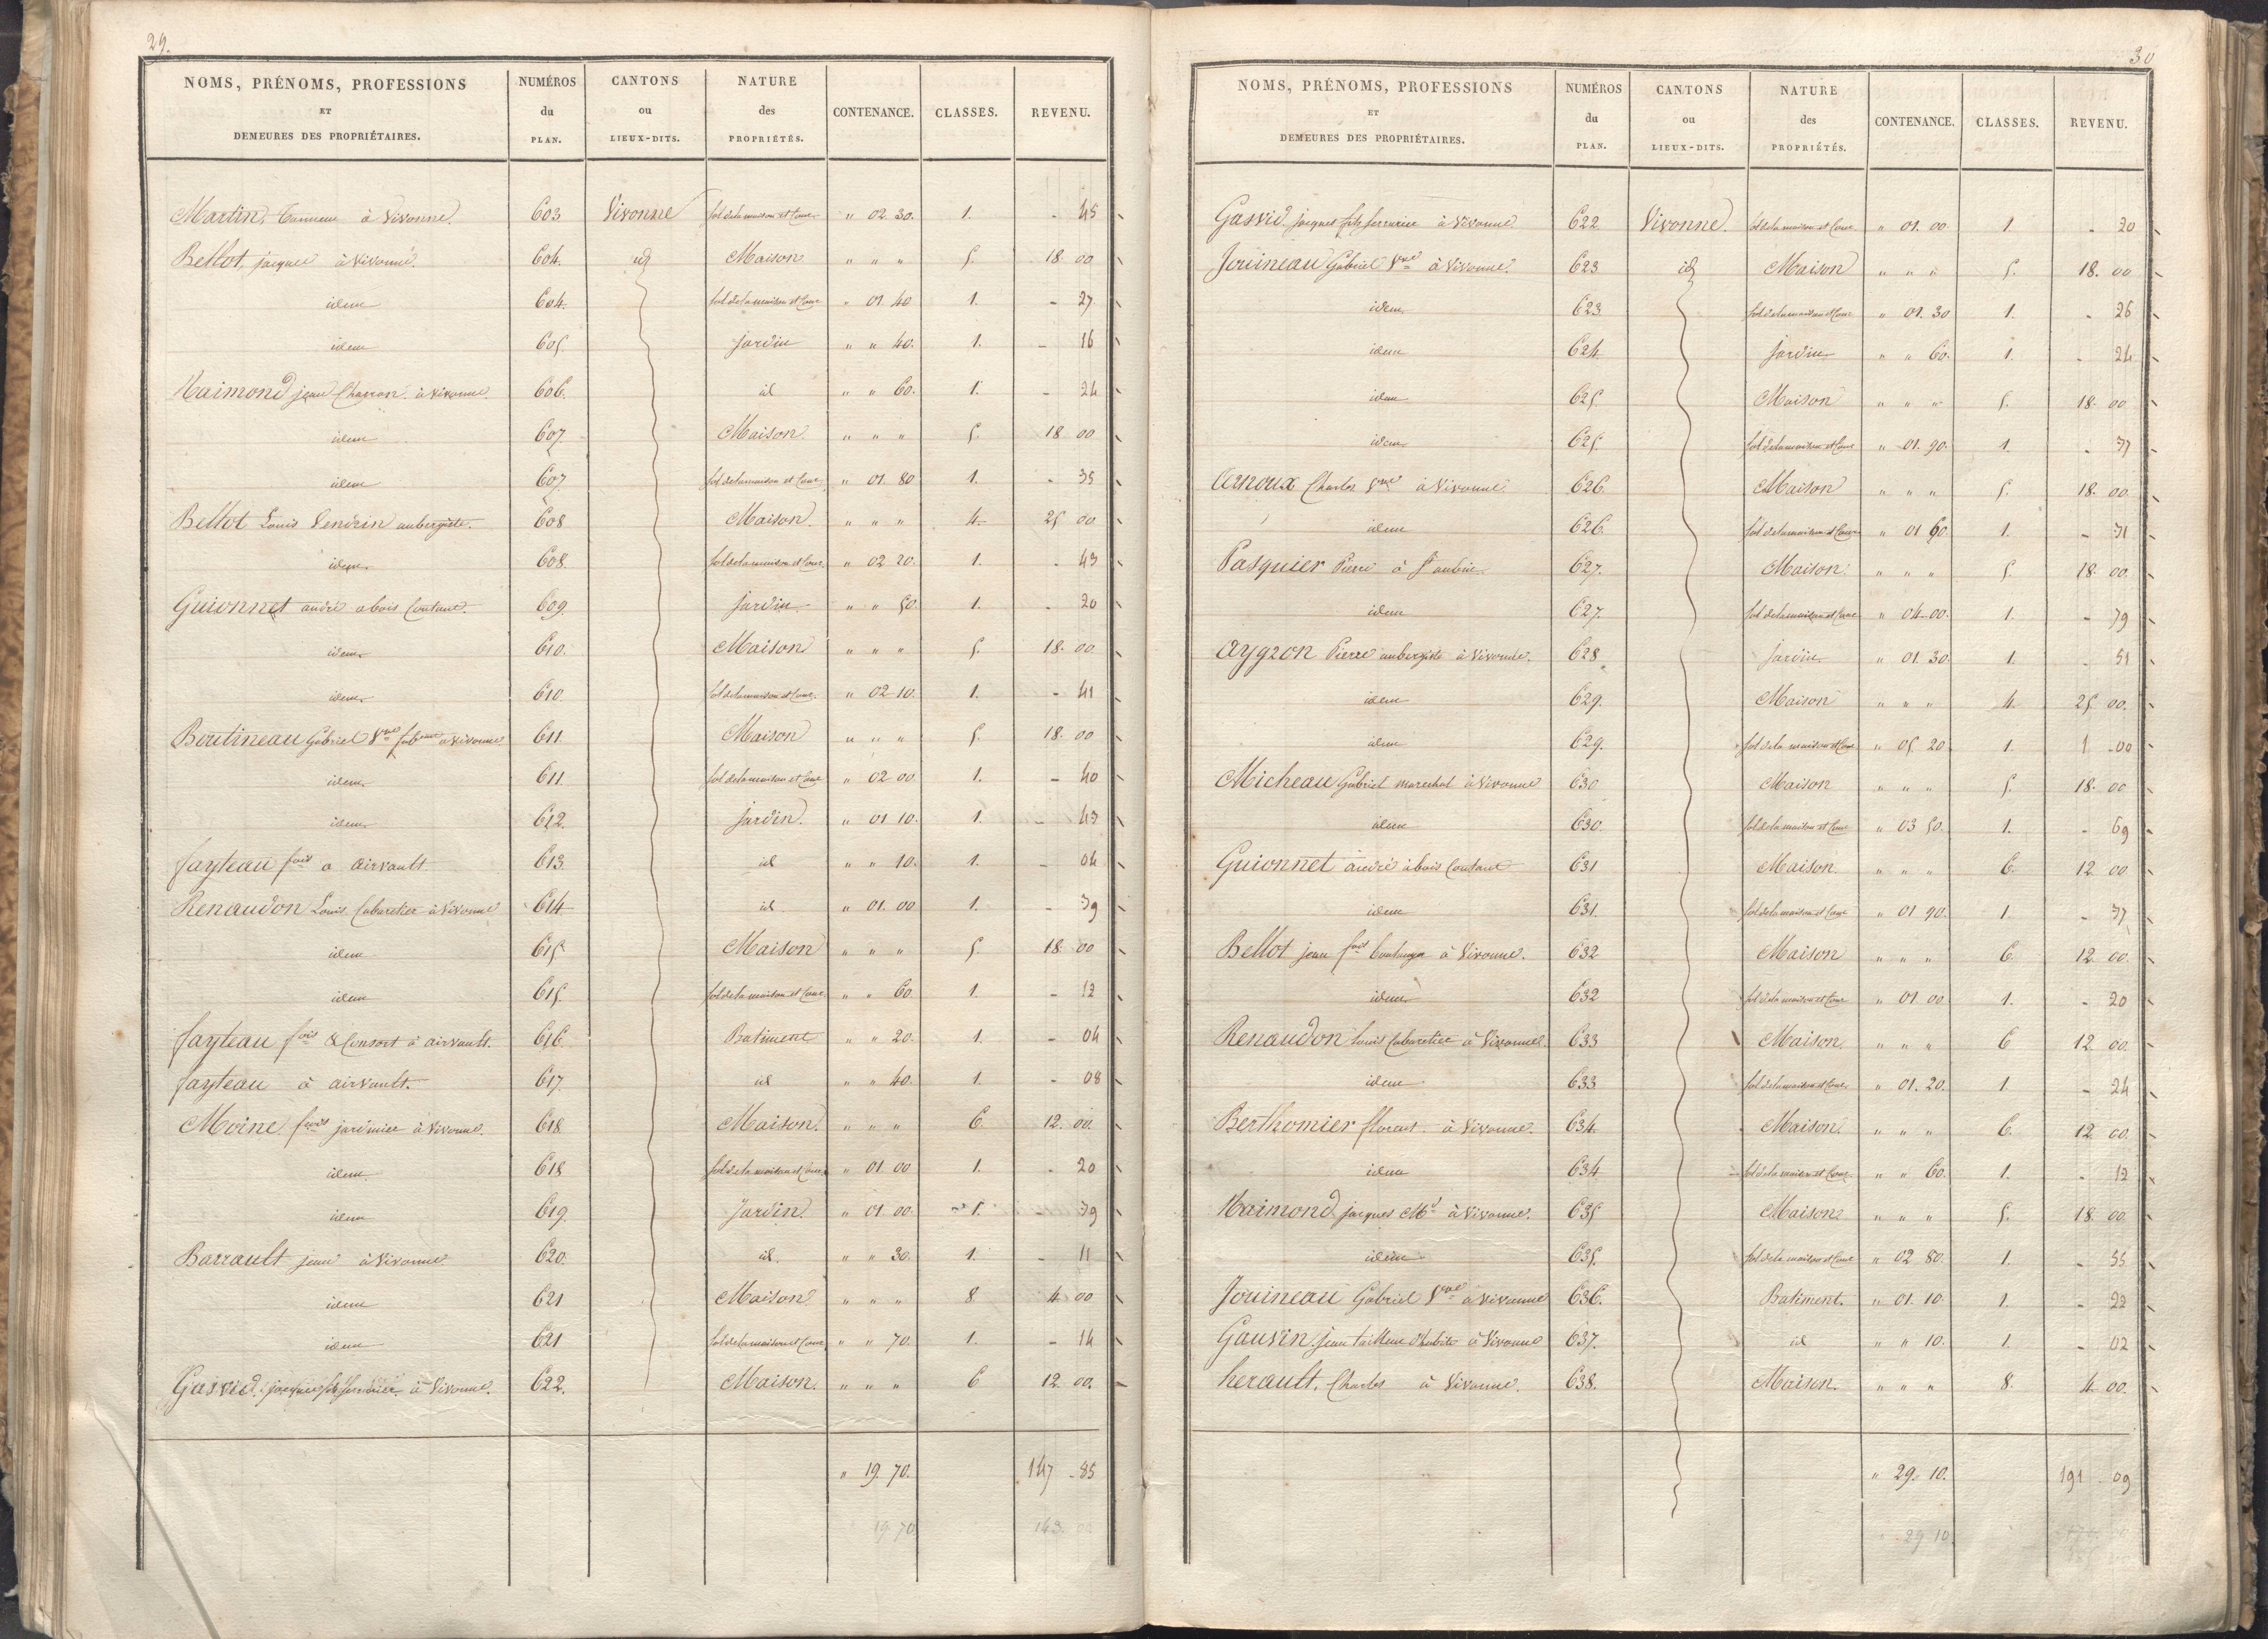 29.
NOMS, PRÉNOMS, PROFESSIONS ET DEMEURES DES PROPRIÉTAIRES. | NUMÉROS du PLAN. | CANTONS ou LIEUX-DITS. | NATURE des PROPRIÉTÉS. | CONTENANCE. | CLASSES. | REVENU.
Martin, Tanneur à Vivonne. 603 Vivonne sol de la maison et Cour " 02 30. 1. - 45
Bellot, jacques à Vivonne. 604. id Maison " " " 5. 18 00
idem 604. sol de la maison et Cour " 01 40 1. - 27.
idem 605. jardin " " 40. 1. - 16
Raimond jean Charron à Vivonne. 606. id " " 60. 1. - 24
idem 607. Maison. " " " 5. 18 00
idem 607 sol de la maison et Cour " 01 80 1. - 35
Bellot Louis Vendrin aubergiste. 608 Maison. " " " 4. 25 00
idem 608. sol de la maison et Cour. " 02 20. 1. - 43
Guionnet andré abois Coutant. 609. jardin " " 50. 1. - 20
idem 610. Maison " " " 5. 18. 00
idem 610. sol de la maison et Cour. " 02 10. 1. - 41
Boutineau Gabriel Vve à Vivonne 611. Maison " " " 5. 18. 00
idem 611. sol de la maison et Cour " 02 00 1. - 40
idem 612. jardin. " 01 10. 1. - 43
fayteau fois a airvault 613. id " " 10. 1. - 04
Renaudon Louis Cabaretier à Vivonne 614 id " 01. 00 1. - 39
idem 615. Maison " " " 5. 18. 00
idem 615. sol de la maison et Cour " " 60 1. - 12
fayteau fois & Consort à airvault. 616. Batiment " " 20. 1. - 04
fayteau à airvault. 617. id " " 40. 1. - 08
Moine fois jardinier à Vivonne. 618 Maison. " " " 6 12. 00.
idem. 618 sol de la maison et Cour " 01 00 1. - 20
idem 619. Jardin. " 01 00. 1. - 39
Barrault jean à Vivonne 620. id. " " 30. 1. - 11
idem 621 Maison " " " 8 4 00
idem 621 sol de la maison et Cour " " 70. 1. - 14
Gasvid. jacques fils serrurier à Vivonne. 622. Maison. " " " 6 12. 00.
" 19. 70. 147 - 85
19. 70 143.
30
NOMS, PRÉNOMS, PROFESSIONS ET DEMEURES DES PROPRIÉTAIRES. | NUMÉROS du PLAN. | CANTONS ou LIEUX-DITS. | NATURE des PROPRIÉTÉS. | CONTENANCE. | CLASSES. | REVENU.
Gasvid. jacques fils serrurier à Vivonne. 622 Vivonne. sol de la maison et Cour " 01. 00. 1. - 20
Jouineau Gabriel Vve à Vivonne. 623 id Maison " " " 5. 18. 00
idem. 623. sol de la maison et Cour " 01. 30 1. - 26
idem 624. jardin " " 60. 1. - 24
idem 625. Maison " " " 5. 18. 00
idem 625. sol de la maison et Cour " 01. 90. 1. - 37
Arnoux Charles Vve à Vivonne. 626. Maison " " " 5. 18. 00
idem 626. sol de la maison et Cour " 01 60. 1. - 31
Pasquier Pierre à St aubin 627. Maison. " " " 5. 18 00.
idem 627. sol de la maison et Cour " 04. 00. 1. - 79
Aygron Pierre aubergiste à Vivonne. 628 Jardin " 01. 30. 1. - 51
idem 629. Maison " " " 4. 25 00.
idem 629. sol de la maison et Cour " 05. 20. 1. 1 - 00
Micheau Gabriel marechal à Vivonne 630 Maison " " " 5. 18. 00
idem 630. sol de la maison et Cour " 03 50. 1. - 69
Guionnet andré à bois Coutant 631 Maison. " " " 6. 12 00
idem 631. sol de la maison et Cour " 01 90. 1 - 37
Bellot jean fois boulanger à Vivonne. 632 Maison " " " 6. 12. 00
idem 632 sol de la maison et Cour " 01. 00 1. - 20
Renaudon Louis Cabaretier à Vivonne. 633 Maison. " " " 6 12 00.
idem. 633 sol de la maison et Cour " 01. 20. 1. - 24
Berthomier florent à Vivonne. 634. Maison. " " " 6. 12 00.
idem 634 sol de la maison et Cour " " 60. 1. - 12
Raimond jacques Md à Vivonne. 635 Maison. " " " 5. 18 00
idem 635. sol de la maison et Cour " 02 80. 1. - 55
Jouineau Gabriel Vve à Vivonne 636. Batiment. " 01. 10 1. - 22
Gauvin jean tailleur d'habits à Vivonne 637. id " " 10. 1. - 02
herault, Charles à Vivonne. 638. Maison. " " " 8. 4 00.
" 29. 10. 191 - 09
29 10